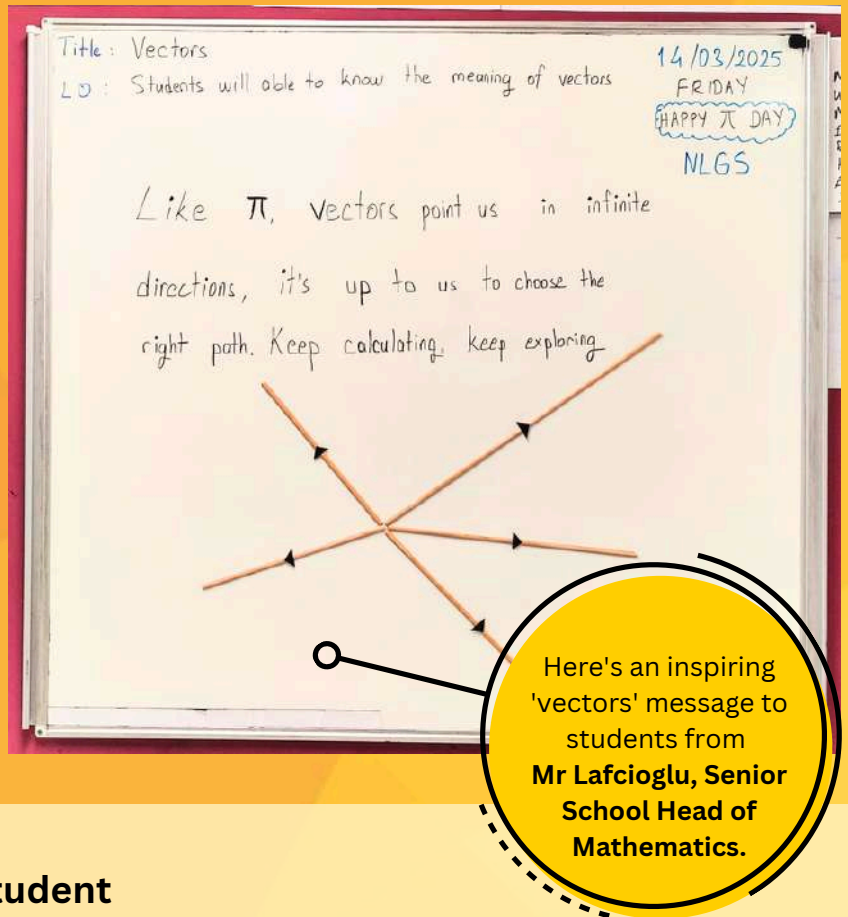 Title : Vectors
LO : Students will able to know the meaning of vectors
14/03/2025
FRIDAY
HAPPY π DAY
NLGS
Like π, vectors point us in infinite
directions, it's up to us to choose the
right path. Keep calculating, keep exploring
Here's an inspiring
'vectors' message to
students from
Mr Lafcioglu, Senior
School Head of
Mathematics.
tudent